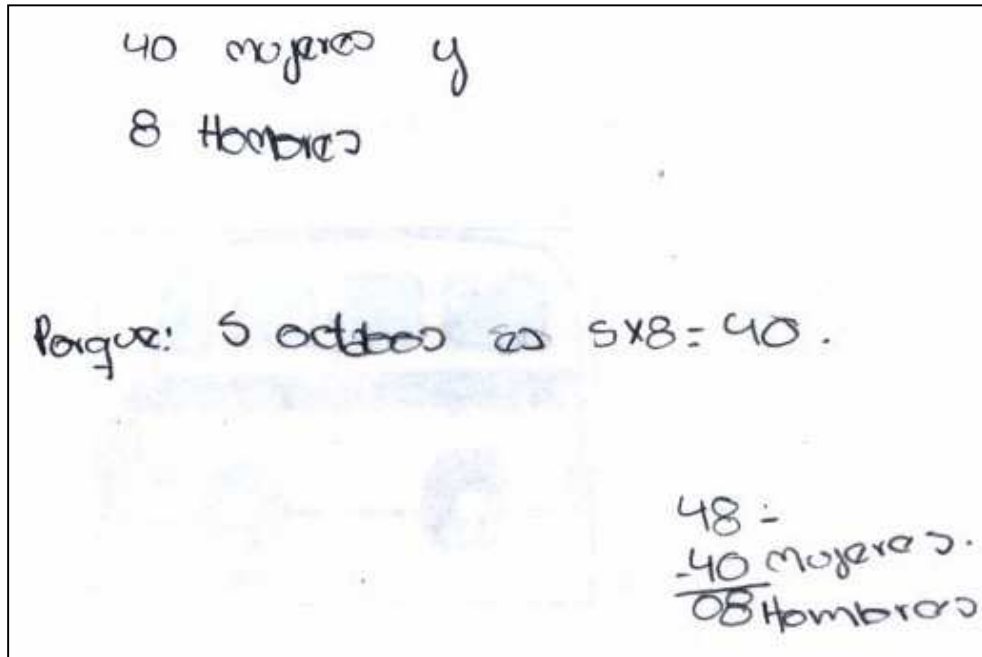 40 mujeres y
8 Hombres
Porque: 5 octabos es 5x8=40.
48-
-40 mujeres.
08 Hombres